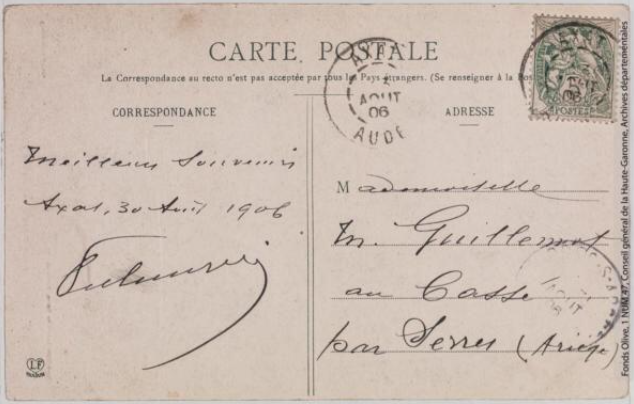 CARTE POSTALE
La Correspondance au recto n'est pas acceptée par tous les Pays étrangers. (Se renseigner à la Pos
CORRESPONDANCE
ADRESSE
Meilleurs Souvenirs
Axat, 30 Août 1906
Mademoiselle
M. Guillemot
au Cassé
par Serres (Ariège)
AOUT
06
AUDE
POSTES
AOUT
LF
Fonds Olive, 1 NUM 47, Conseil général de la Haute-Garonne, Archives départementales